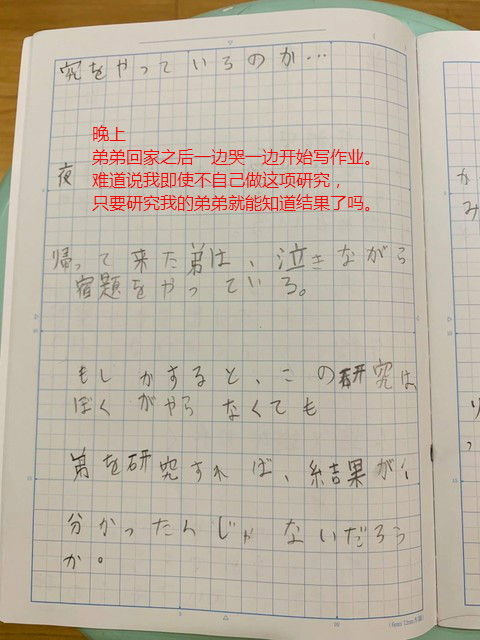 究をやっているのか…
晩上
弟弟回家之后一边哭一边开始写作业。
难道说我即使不自己做这项研究，
只要研究我的弟弟就能知道结果了吗。
夜
帰って来た弟は、泣きながら
宿題をやっている。
もしかすると、この研究は、
ぼくがやらなくても
弟を研究すれば、結果が
分かったんじゃないだろう
か。
か
み